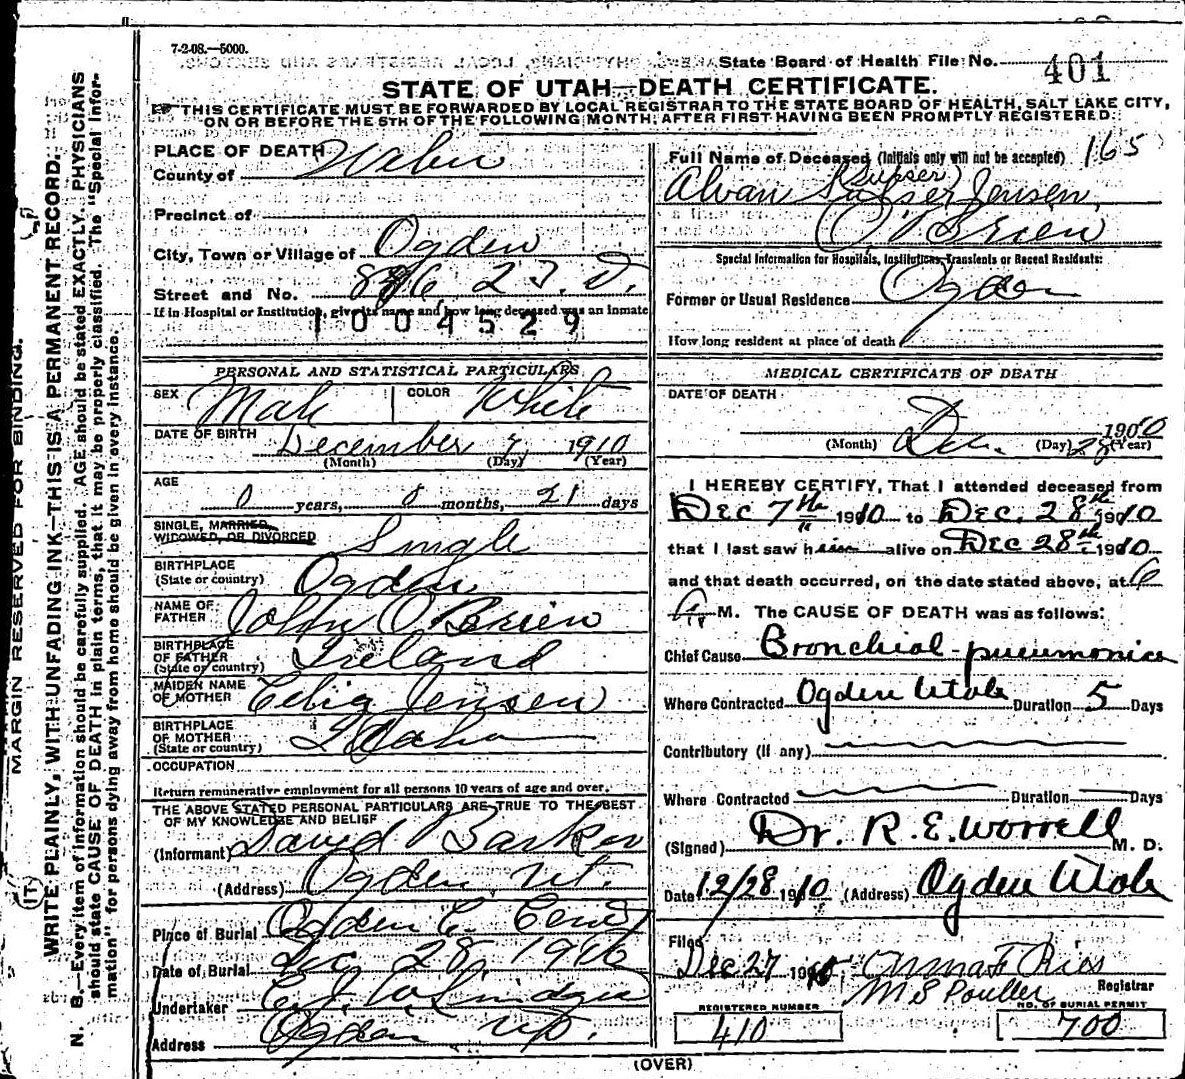 7-2-08.—5000.
State Board of Health File No. 401
STATE OF UTAH—DEATH CERTIFICATE.
THIS CERTIFICATE MUST BE FORWARDED BY LOCAL REGISTRAR TO THE STATE BOARD OF HEALTH, SALT LAKE CITY,
ON OR BEFORE THE 5TH OF THE FOLLOWING MONTH, AFTER FIRST HAVING BEEN PROMPTLY REGISTERED.
MARGIN RESERVED FOR BINDING.
WRITE PLAINLY, WITH UNFADING INK—THIS IS A PERMANENT RECORD.
N. B.—Every item of information should be carefully supplied. AGE should be stated EXACTLY. PHYSICIANS
should state CAUSE OF DEATH in plain terms, that it may be properly classified. The "Special Infor-
mation" for persons dying away from home should be given in every instance.
PLACE OF DEATH
County of Weber
Precinct of
City, Town or Village of Ogden
Street and No.
If in Hospital or Institution, give its name and how long deceased was an inmate
1004529
PERSONAL AND STATISTICAL PARTICULARS
SEX Male COLOR White
DATE OF BIRTH December 7 1910
(Month) (Day) (Year)
AGE
0 years, 0 months, 21 days
SINGLE, MARRIED,
WIDOWED, OR DIVORCED Single
BIRTHPLACE
(State or country) Ogden
NAME OF
FATHER John O'Brien
BIRTHPLACE
OF FATHER
(State or country) Ireland
MAIDEN NAME
OF MOTHER Celia Jensen
BIRTHPLACE
OF MOTHER
(State or country) Idaho
OCCUPATION
Return remunerative employment for all persons 10 years of age and over.
THE ABOVE STATED PERSONAL PARTICULARS ARE TRUE TO THE BEST
OF MY KNOWLEDGE AND BELIEF
(Informant) David Barker
(Address) Ogden, Ut.
Place of Burial Ogden C. Cem
Date of Burial Dec 28, 1910
Undertaker
Address Ogden
Full Name of Deceased (Initials only will not be accepted) 165
Alvan Jensen
O'Brien
Special Information for Hospitals, Institutions, Transients or Recent Residents:
Former or Usual Residence Ogden
How long resident at place of death
MEDICAL CERTIFICATE OF DEATH
DATE OF DEATH
Dec. 28 1910
(Month) (Day) (Year)
I HEREBY CERTIFY, That I attended deceased from
Dec 7th 1910 to Dec. 28th 1910
that I last saw him alive on Dec 28th 1910
and that death occurred, on the date stated above, at 6
A M. The CAUSE OF DEATH was as follows:
Chief Cause Bronchial-pneumonia
Where Contracted Ogden Utah Duration 5 Days
Contributory (if any)
Where Contracted Duration Days
(Signed) Dr. R. E. Worrell M. D.
Date 12/28 1910 (Address) Ogden Utah
Filed
Dec 27 1910
Registrar
REGISTERED NUMBER NO. OF BURIAL PERMIT
410 700
(OVER)